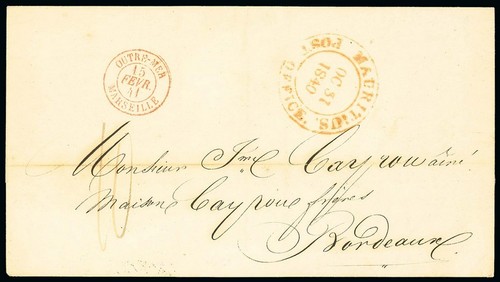 OUTRE-MER
15
FEVR.
41
MARSEILLE
MAURITIUS. POST OFFICE.
OC 31
1840
Monsieur Jme Cayrou aîné
Maison Cayrou frères
Bordeaux